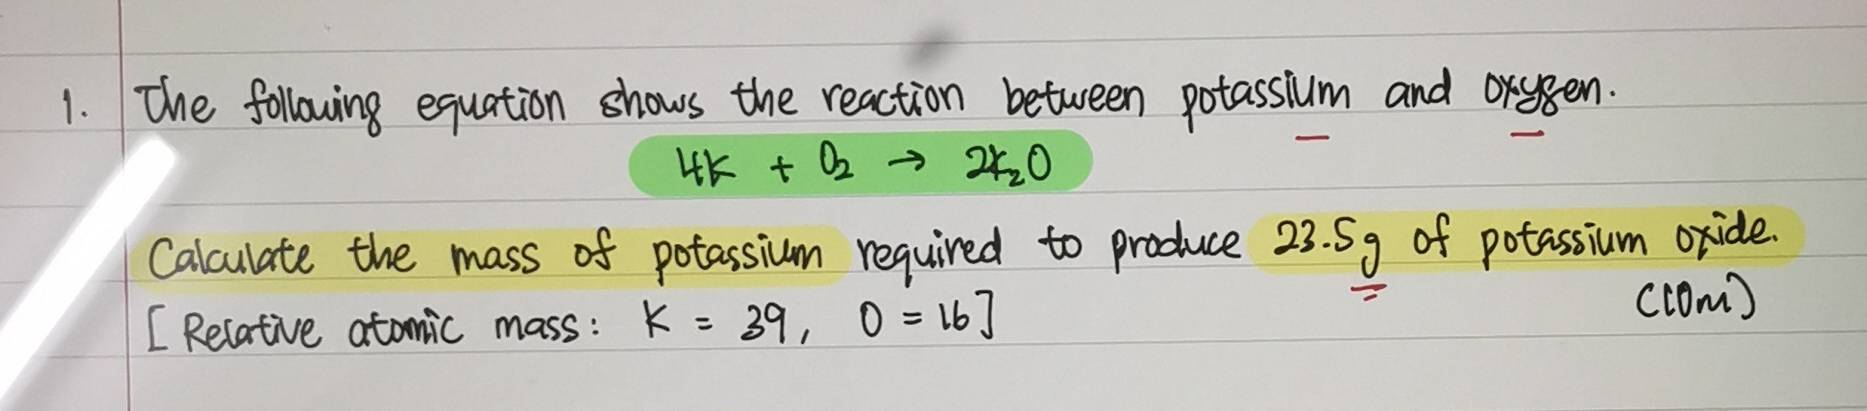 1. The following equation shows the reaction between potassium and oxygen.
4K + O₂ → 2K₂O
Calculate the mass of potassium required to produce 23.5g of potassium oxide.
[Relative atomic mass: K = 39, O = 16] (10m)